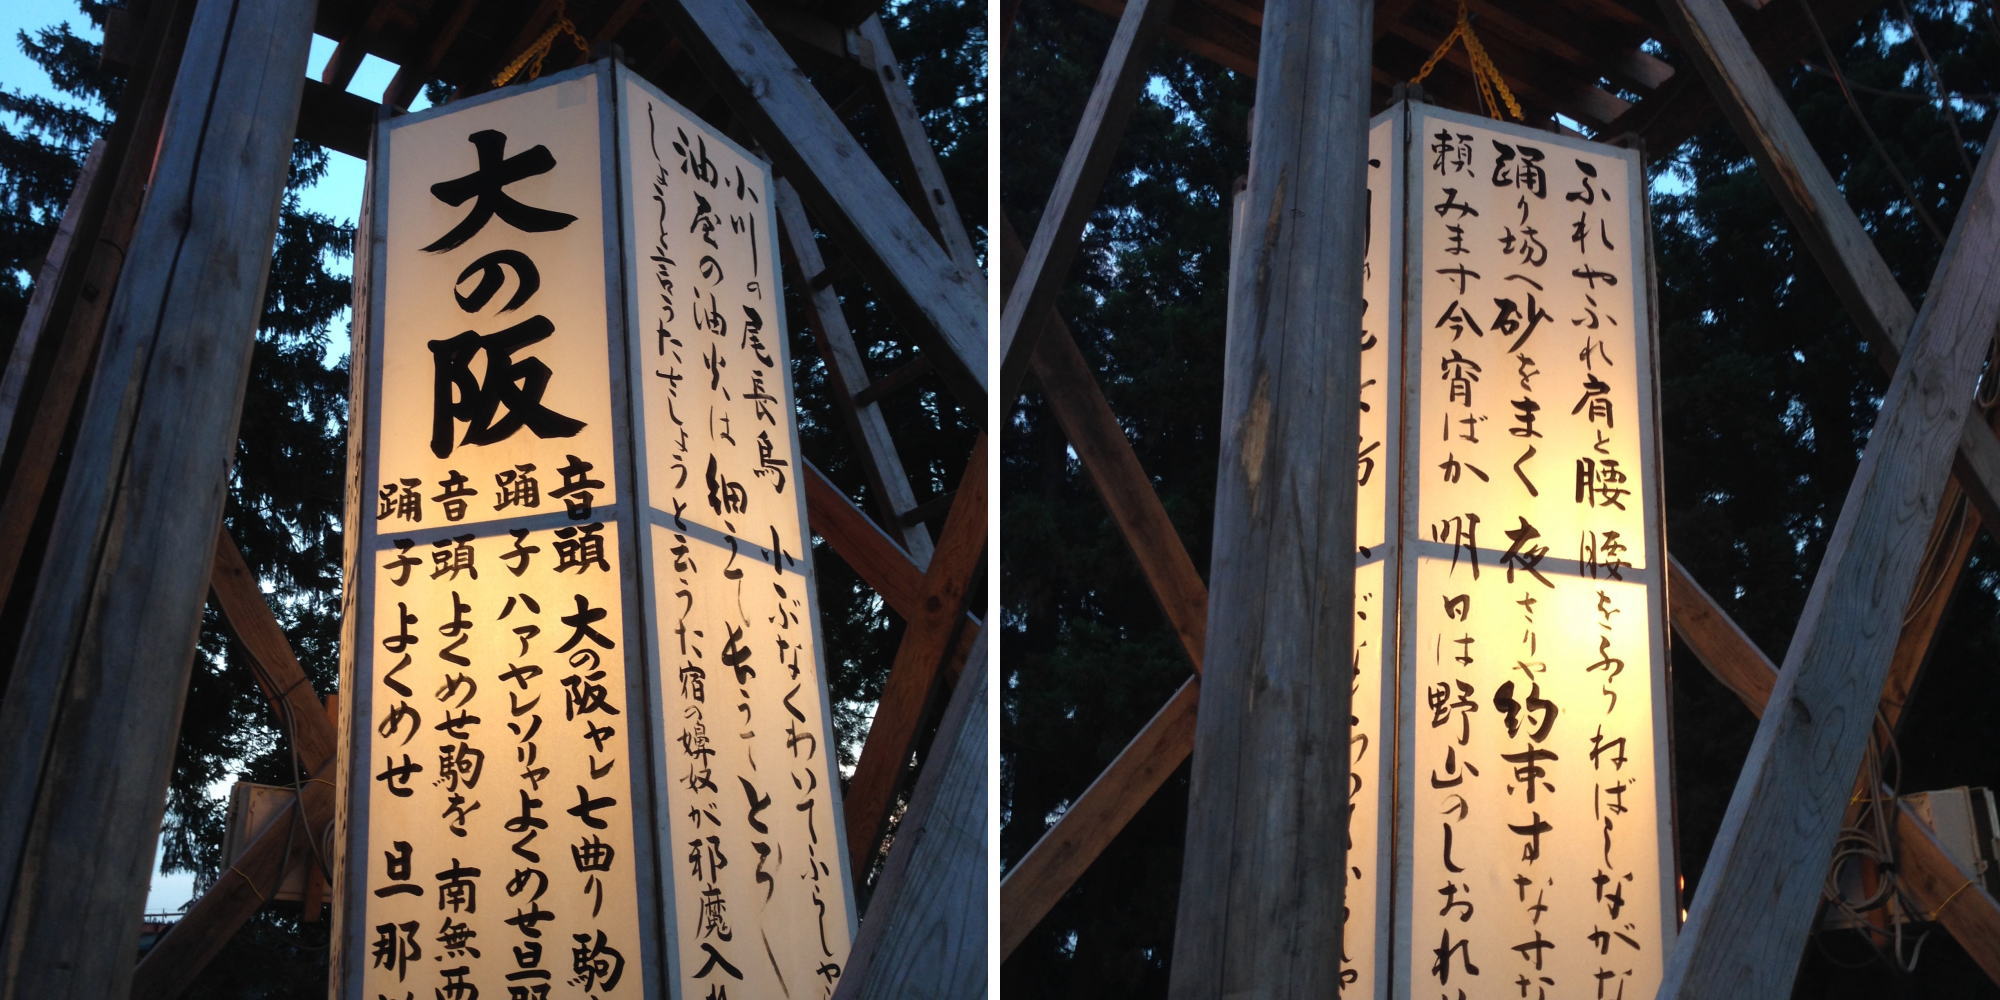 大の阪
音頭 大の阪ヤレ七曲り 駒
踊子 ハァヤレソリャよくめせ旦那
音頭 よくめせ駒を 南無西
踊子 よくめせ 旦那
小川の尾長鳥 小ぶなくわいてふらしゃ
油屋の油火は 細うて長うてとろ
しょうと言うたさしょうと云うた宿の嬶奴が邪魔入れ
ふれやふれ肩と腰 腰をふらねばしながな
踊り場へ砂をまく 夜さりや約束すなすな
頼みます今宵ばか 明日は野山のしおれ